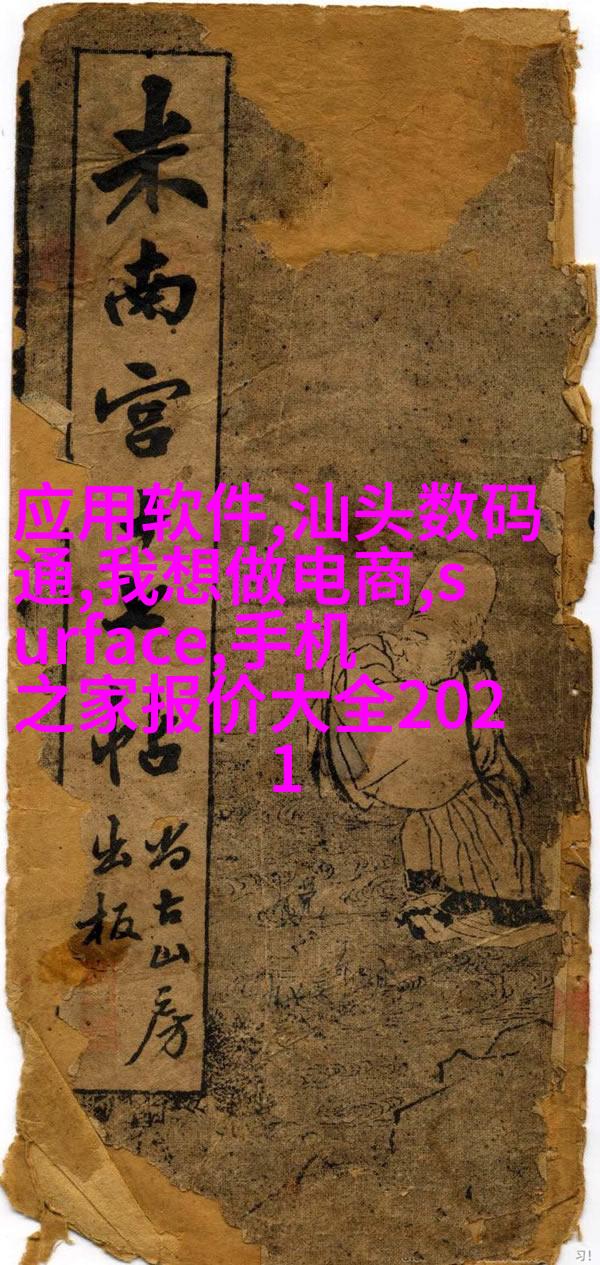 米南宫
帖
尚古山房
出板
应用软件,汕头数码
通,我想做电商,s
urface,手机
之家报价大全202
1
习!